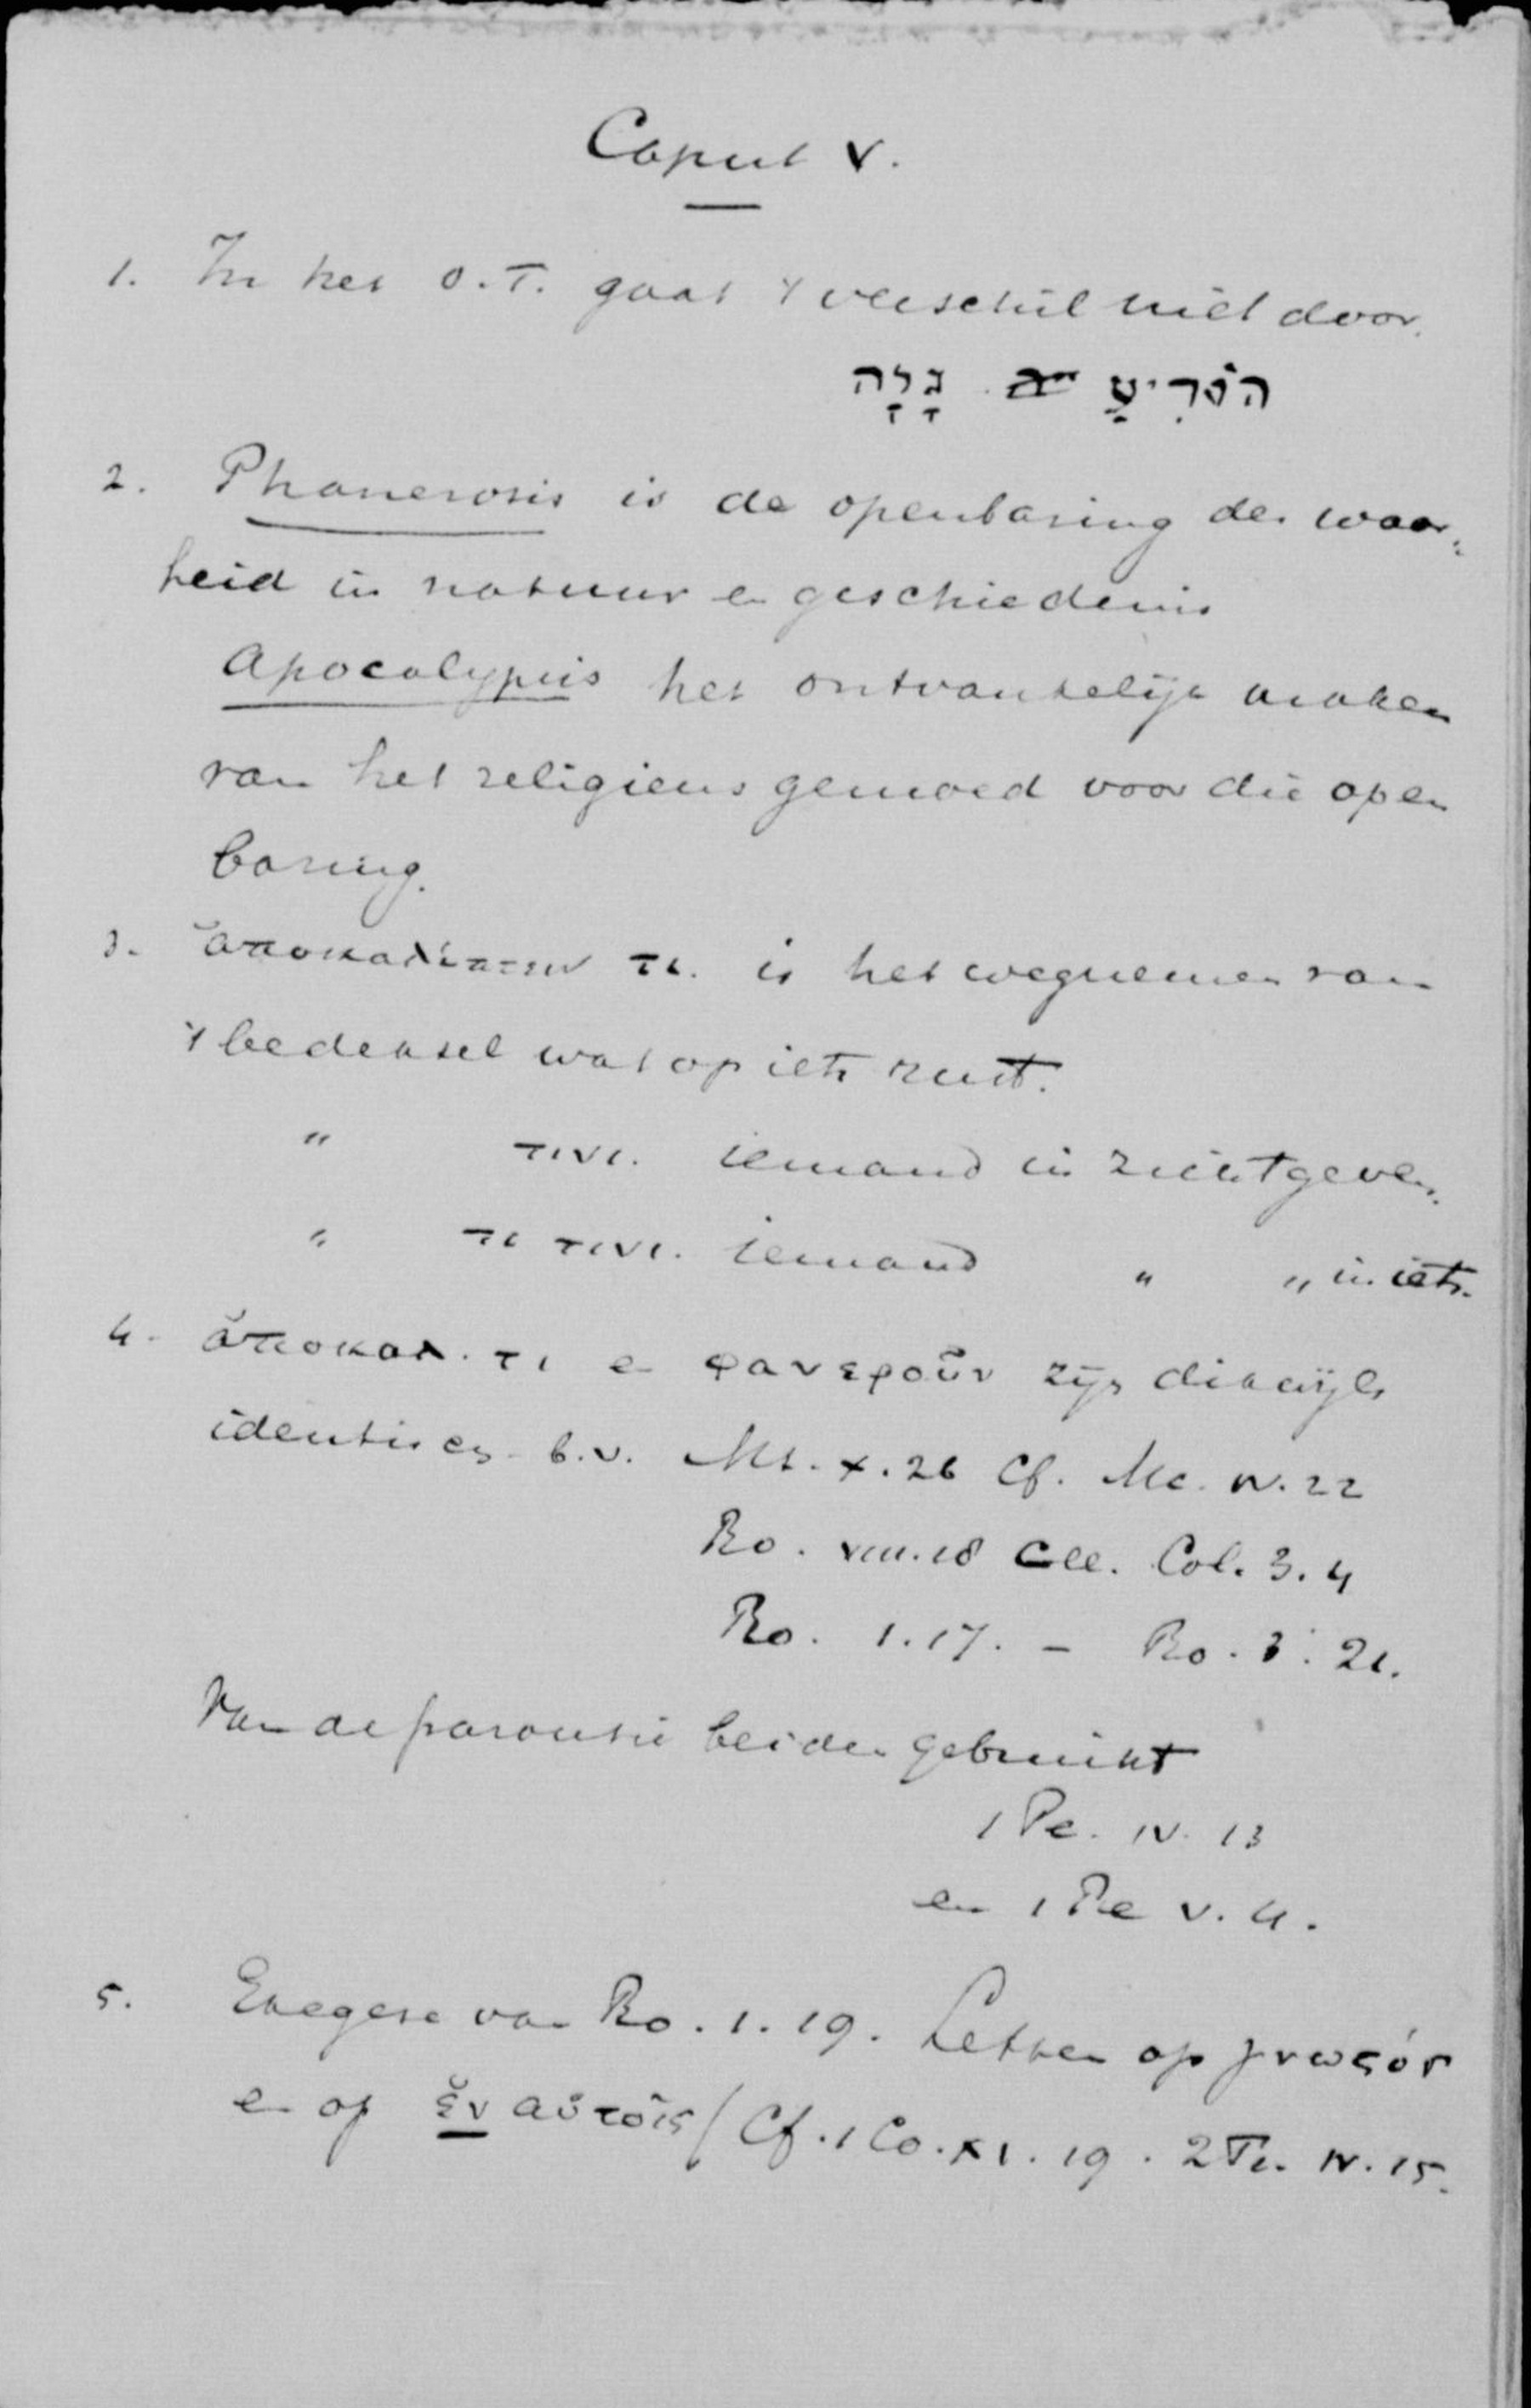 Caput V.
1. In het O.T. gaat 't verschil niet door.
הוֹדִיעַ גָּלָה
2. Phanerosis is de openbaring der waar-
heid in natuur en geschiedenis
Apocalypsis het ontvankelijk maken
van het religieus gemoed voor die open
baring.
3. ἀποκαλύπτειν τι. is het wegnemen van
't bedeksel wat op iets rust.
" τινι. iemand in zicht geven.
" τι τινι. iemand " " in iets.
4. ἀποκαλ. τι en φανεροῦν zijn dikwijls
identisch b.v. Mt. X. 26 Cf. Mc. IV. 22
Ro. VIII. 18 Cll. Col. 3. 4
Ro. 1. 17. - Ro. 3. 21.
Van de parousie beiden gebruikt
1 Pe. IV. 13
en 1 Pe V. 4.
5. Exegese van Ro. 1. 19. Letten op γνωϛόν
en op ἐν αὐτοῖς / Cf. 1 Co. XI. 19. 2 Ti. IV. 15.